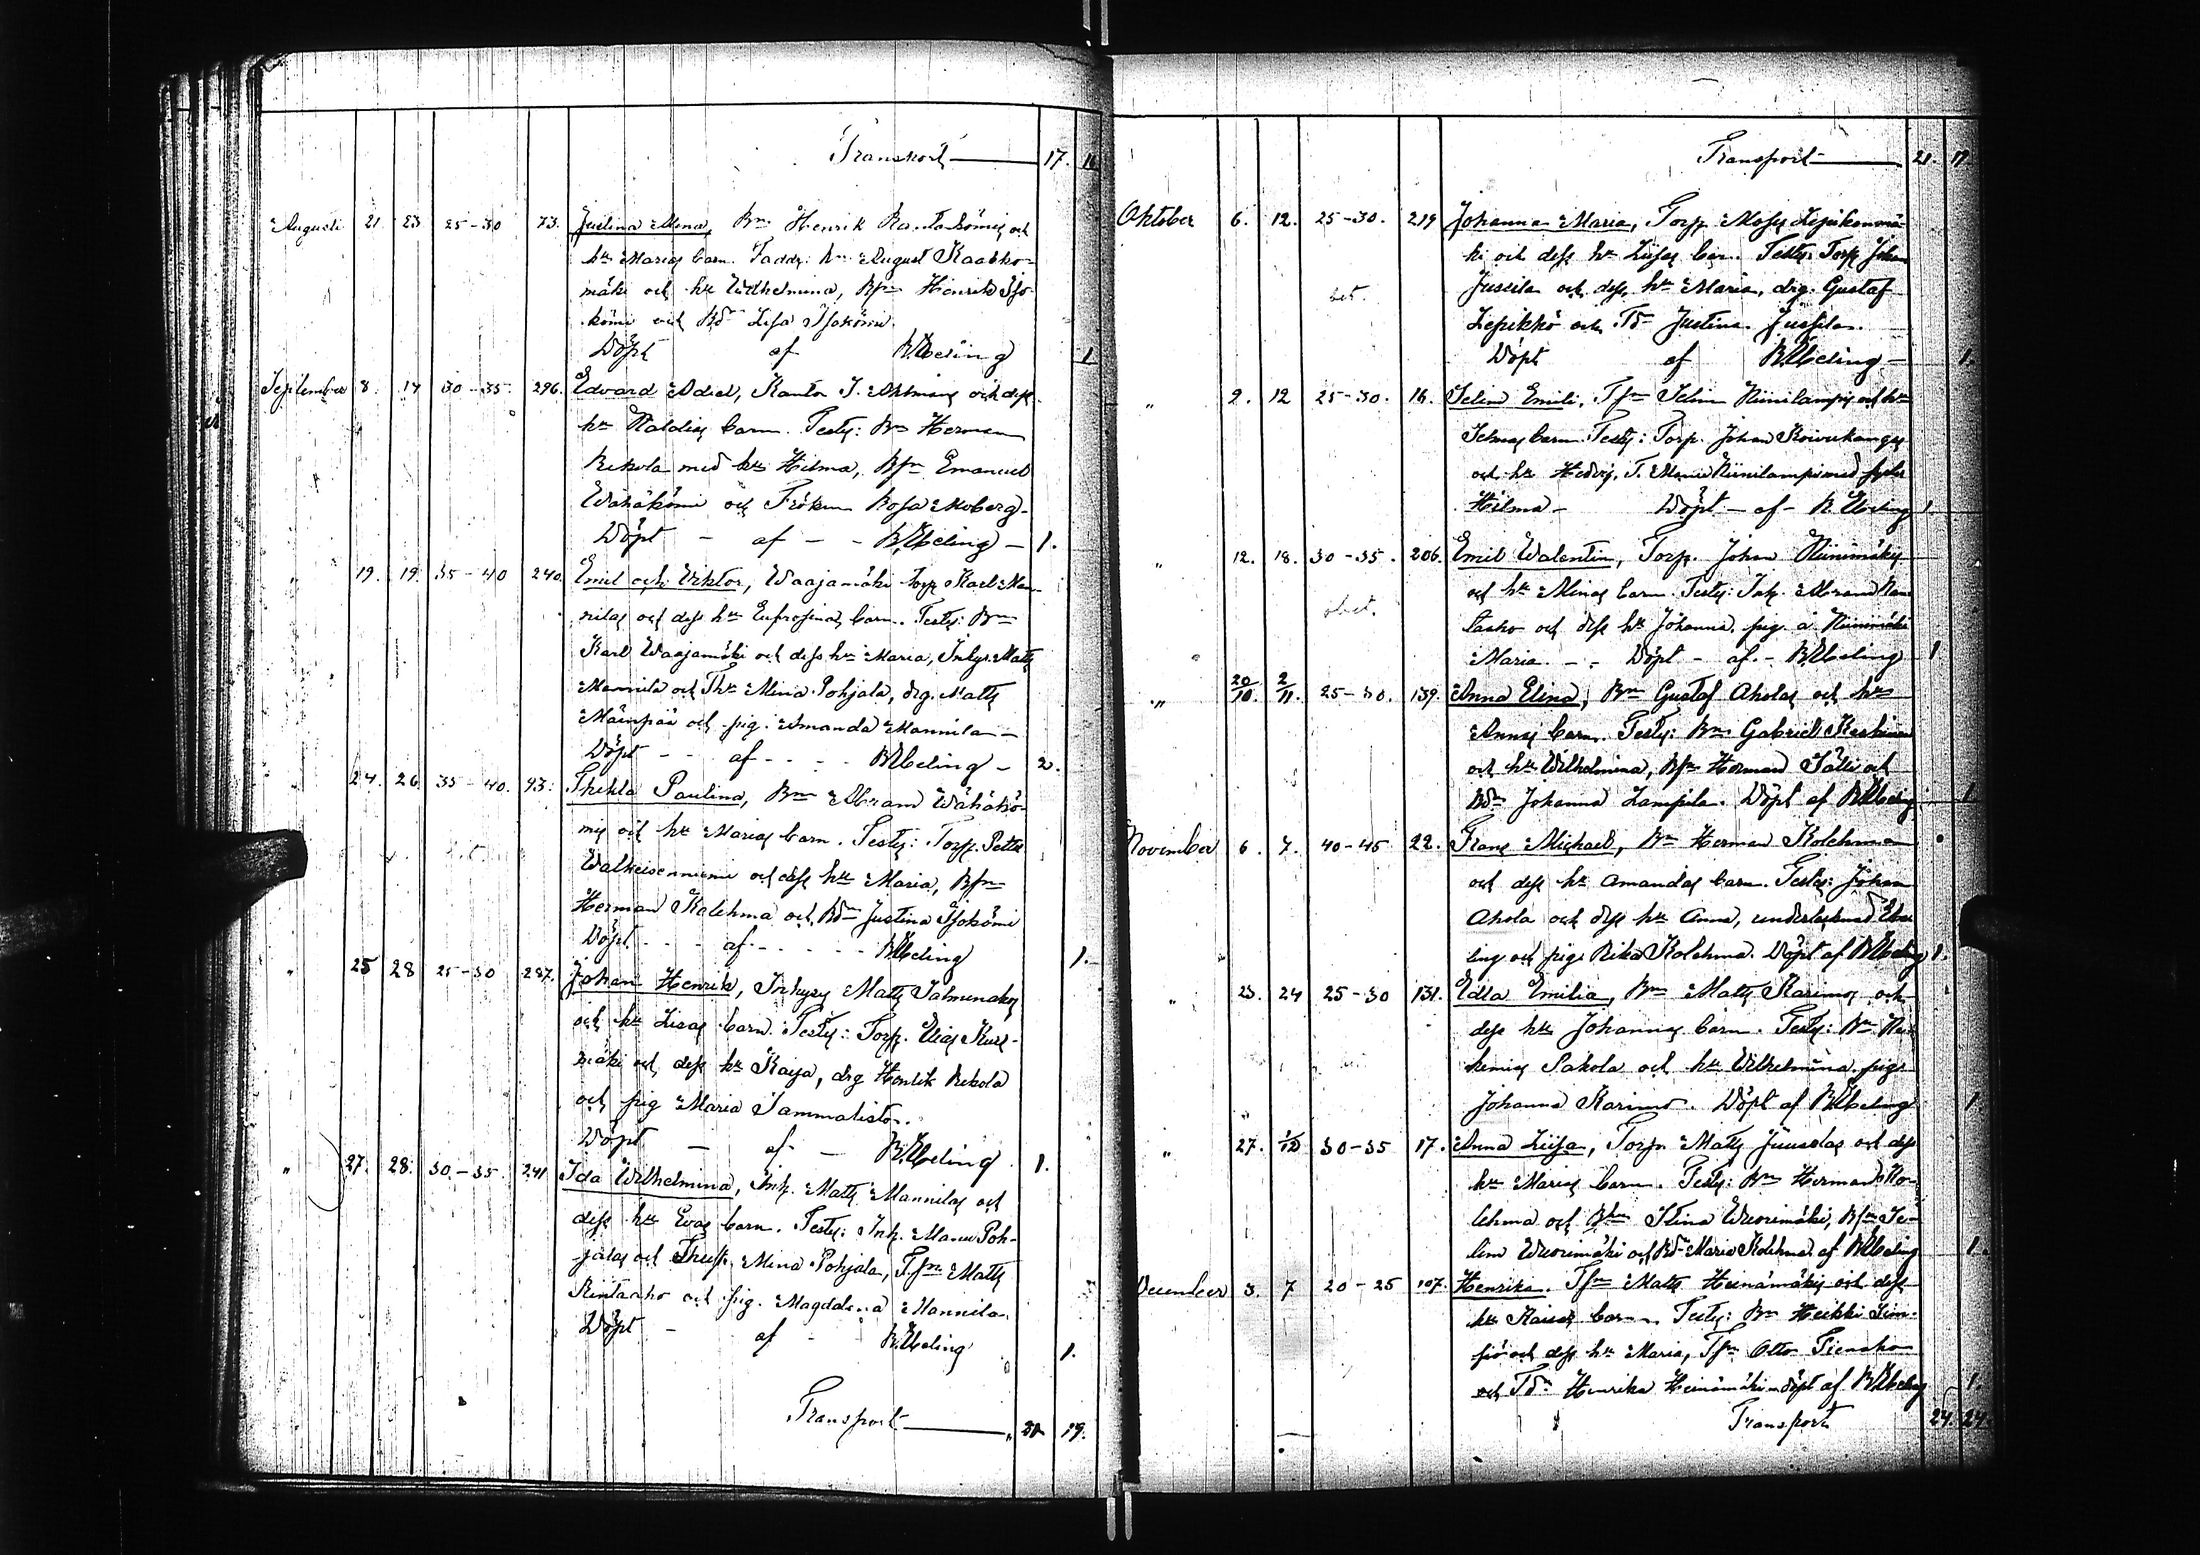 Transport 17.
Augusti 21 23 25-30 73. Justina Mina, Bn Henrik Rantakömis och
hu Marias barn. Faddr: Bn August Kaakko-
mäki och hu Wilhelmina, Bsn Henrik Iso
kömi och Bdr Lisa Isokömi.
Döpt af B. Ubeling 1
September 8. 14 30-35. 296. Edvard Adiel, Kantor J. Ahlmans och dess
hu Naldis barn. Testes: Bn Herman
Rekola med hu Hilma, Bsn Emanuel
Wähäkömi och Fröken Rosa Moberg.
Döpt - af - - B. Ubeling - 1.
" 19. 19. 35-40 240. Emil och Viktor, Waajamäki torp Karl Man-
nilas och dess hu Eufrosinas barn. Testes: Bn
Karl Waajamäki och dess hu Maria, Inhys. Matts
Mannila och Thu Mina Pohjala, drg. Matts
Mäenpää och pig. Amanda Mannila -
Döpt - - af - - - - B. Ubeling - 2.
" 24. 26. 35-40. 93. Thekla Paulina, Bn Abram Wähäkö-
mis och hu Marias barn. Testes: Torp. Petter
Walkeisenniemi och dess hu Maria, Bsn
Herman Kalehma och Bdr Justina Isokömi
Döpt - - - af - - - - B. Ubeling 1.
" 25 28 25-30 287. Johan Henrik, Inhyses Matts Salmenakes
och hu Lisas barn. Testes: Torp. Elias
mäki och dess hu Kaija, drg Henrik Rekola
och pig Maria Sammalisto.
Döpt - af - B. Ubeling 1.
" 27. 28. 30-35. 241 Ida Wilhelmina, Inh. Matts Mannilas och
dess hu Evas barn. Testes: Inh. Manu Poh-
jalas och Mina Pohjala, Tsn Matts
Rintaaho och pig. Magdalena Mannila.
Döpt - af - B. Ubeling 1.
Transport 19.
Transport 21. 17
Oktober 6. 12. 25-30. 219 Johanna Maria, Torp Moses Lepikönmä-
ki och dess hu Liisas barn. Testes: Torp Johan
Jussila och dess hu Maria, drg. Gustaf
Lepikkö och Td Justina Jussila.
Döpt af B. Ubeling 1.
" 9. 12 25-30. 16. Selim Emil, Tsn Selim Niinilampis och hu
Selmas barn. Testes: Torp. Johan Koivukangas
och hu Hedvig, T. Manu Niinilampi med syster
Hilma - Döpt - af - B. Ubeling 1.
" 12. 18. 30-35. 206. Emil Walentin, Torp. Johan Niinimäkis
och hu Minas barn. Testes: Inh. Abram
och dess hu Johanna, pig. à Niinimäki
Maria. - - Döpt - af - B. Ubeling 1
" 20/10. 2/11. 25-30. 139. Anna Elina, Bn Gustaf Aholas och hus
Annas barn. Testes: Bn Gabriel Keskinen
och hu Wilhelmina, Bsn Herman Sälli och
Bdr Johanna Lampila. Döpt af B. Ubeling 1.
November 6. 7. 40-45 22. Frans Michael, Bn Herman Kolehmas
och dess hu Amandas barn. Testes: Johan
Ahola och dess hu Anna, undertecknad Ube
ling och pigs Rika Kolehma. Döpt af B. Ubeling 1.
" 23. 24 25-30 131. Edla Emilia, Bn Matts Karimos och
dess hu Johannas barn. Testes: Bn Ne-
hemias Sakola och hu Wilhelmina, piga
Johanna Karimo. Döpt af B. Ubeling 1.
" 27. 1/12 30-35 17. Anna Liisa, Torp Matts Juuselas och dess
hu Marias barn. Testes: Bn Herman Ko-
lehma och Bhu Stina Wuorimäki, Bsn Se-
lim Wuorimäki och Bdr Maria Kolehma. af B. Ubeling 1.
December 3. 7 20-25 107. Henrika. Tsn Matts Heinämäkis och dess
hu Kaisas barn. Testes: Bn Heikki Sim-
piö och dess hu Maria, Tsn Otto Tienaho
och Td Henrika Heinämäki - döpt af B. Ubeling 1.
Transport 24. 24.